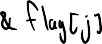 & flag[j]